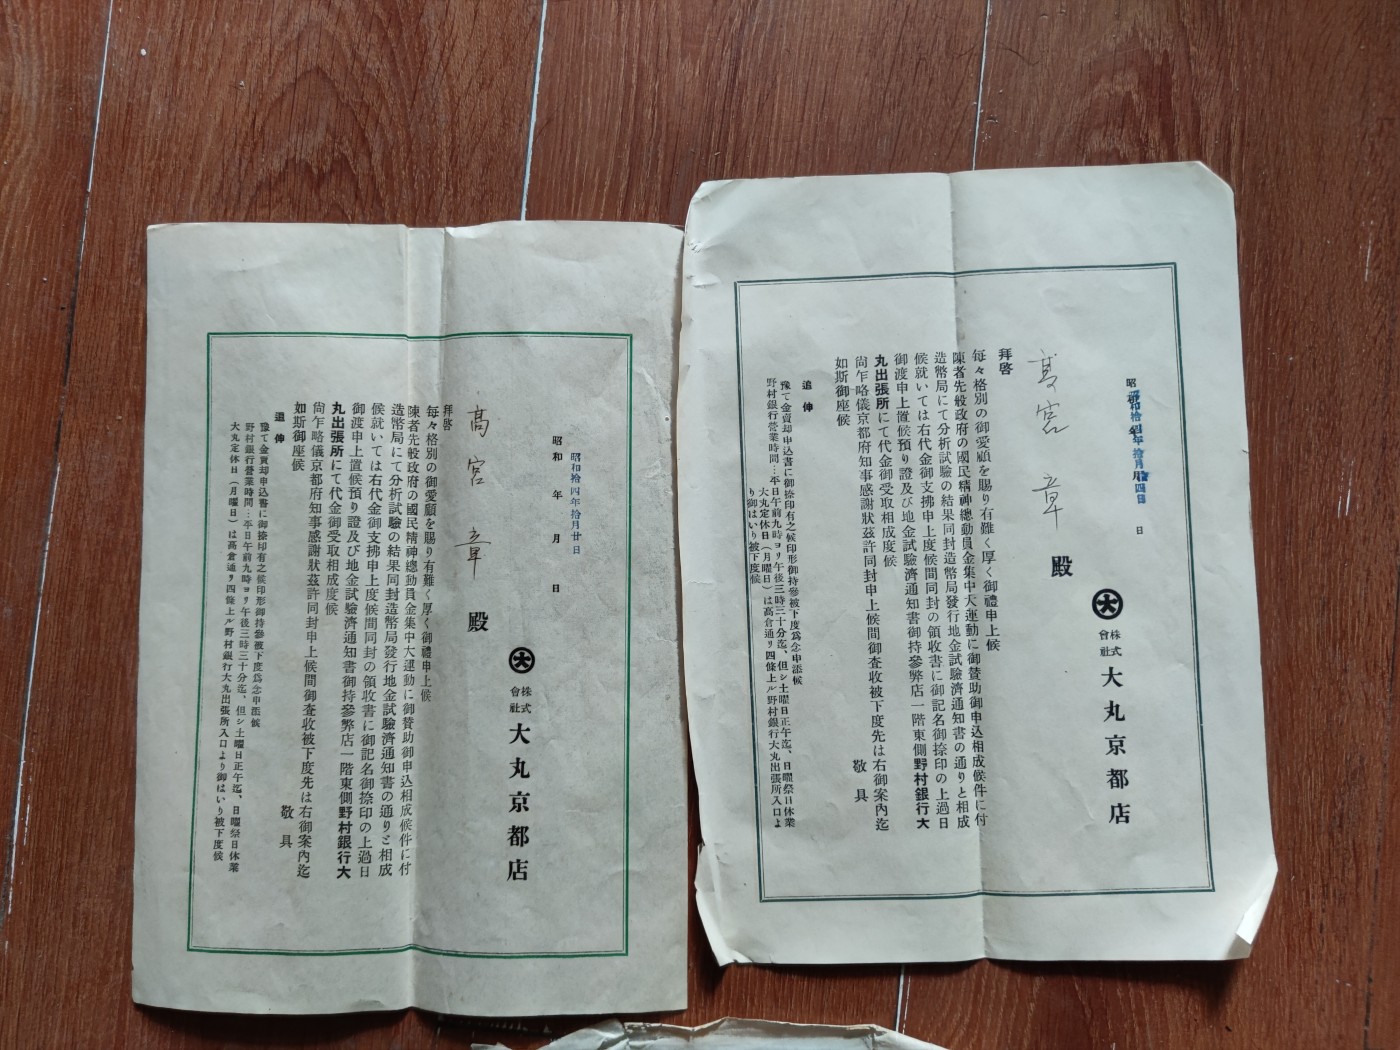 昭和拾四年拾月拾四日
昭 年 月 日
大
株式會社 大丸京都店
髙宮 章 殿
拜啓
每々格別の御愛顧を賜り有難く厚く御禮申上候
陳者先般政府の國民精神總動員金集中大運動に御賛助御申込相成候件に付
造幣局にて分析試驗の結果同封造幣局發行地金試驗濟通知書の通りと相成
候就いては右代金御支拂申上度候間同封の領收書に御記名御捺印の上過日
御渡申上置候預り證及び地金試驗濟通知書御持參弊店一階東側野村銀行大
丸出張所にて代金御受取相成度候
尙乍略儀京都府知事感謝狀玆許同封申上候間御査收被下度先は右御案內迄
如斯御座候
敬具
追伸
豫て金賣却申込書に御捺印有之候印形御持參被下度爲念申添候
野村銀行營業時間…平日午前九時ヨリ午後三時三十分迄、但シ土曜日正午迄、日曜祭日休業
大丸定休日（月曜日）は高倉通リ四條上ル野村銀行大丸出張所入口よ
り御はいり被下度候
昭和拾四年拾月廿日
昭和 年 月 日
大
株式會社 大丸京都店
髙宮 章 殿
拜啓
每々格別の御愛顧を賜り有難く厚く御禮申上候
陳者先般政府の國民精神總動員金集中大運動に御賛助御申込相成候件に付
造幣局にて分析試驗の結果同封造幣局發行地金試驗濟通知書の通りと相成
候就いては右代金御支拂申上度候間同封の領收書に御記名御捺印の上過日
御渡申上置候預り證及び地金試驗濟通知書御持參弊店一階東側野村銀行大
丸出張所にて代金御受取相成度候
尙乍略儀京都府知事感謝狀玆許同封申上候間御査收被下度先は右御案內迄
如斯御座候
敬具
追伸
豫て金賣却申込書に御捺印有之候印形御持參被下度爲念申添候
野村銀行營業時間…平日午前九時ヨリ午後三時三十分迄、但シ土曜日正午迄、日曜祭日休業
大丸定休日（月曜日）は高倉通リ四條上ル野村銀行大丸出張所入口より御はいり被下度候